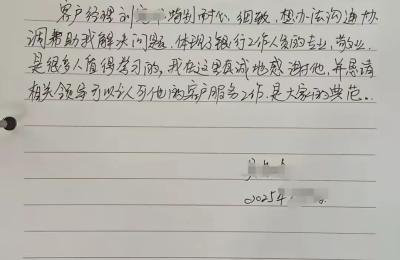 客户经理刘 特别耐心、细致,想办法沟通协
调帮助我解决问题,体现了银行工作人员的专业、敬业,
是很多人值得学习的,我在这里真诚地感谢他,并恳请
相关领导可以认可他的客户服务工作,是大家的典范。
2025年